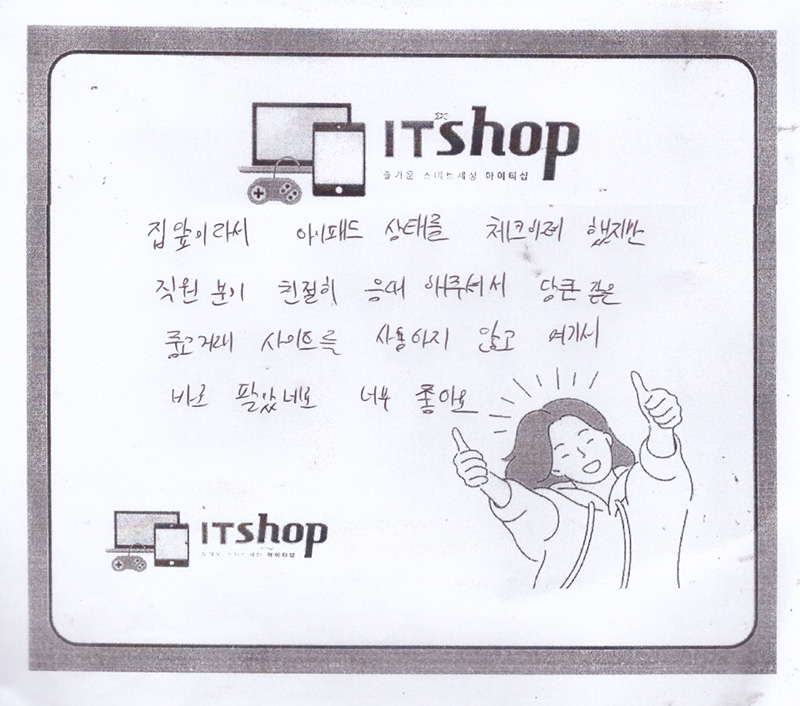 ITshop
즐거운 스마트세상 아이티샵
집앞이라서 아이패드 상태를 체크이제 했지만
직원 분이 친절히 응대 해주셔서 당큰 같은
중고거래 사이트를 사용하지 않고 여기서
바로 팔았네요 너무 좋아요
ITshop
아이티샵